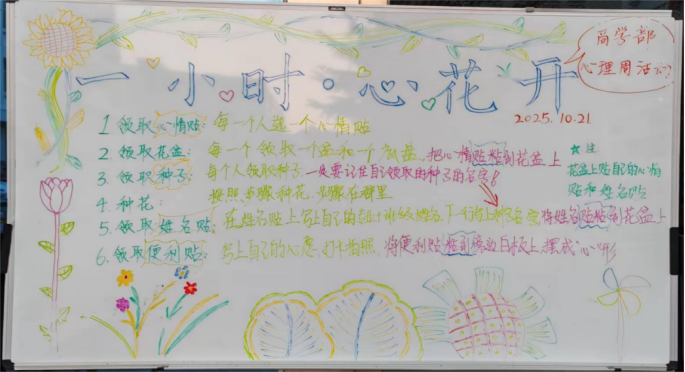 商学部
心理周活动
一小时·心花开
2025.10.21
1 领取心情贴：每一个人选一个心情贴
2 领取花盆：每一个领取一个盆和一个底盘，把心情贴贴到花盆上
3 领取种子：每个人领取种子，一定要记住自己领取的种子的名字！
4 种花：按照步骤种花，步骤在哪里
5 领取姓名贴：在姓名贴上写上自己的 班级姓名，下一行写上种子名字，将姓名贴贴到花盆上
6 领取便利贴：写上自己的心愿，打卡拍照，将便利贴贴到旁边白板上摆成“心”形
☆注
花盆上贴自己的心情
贴和姓名贴